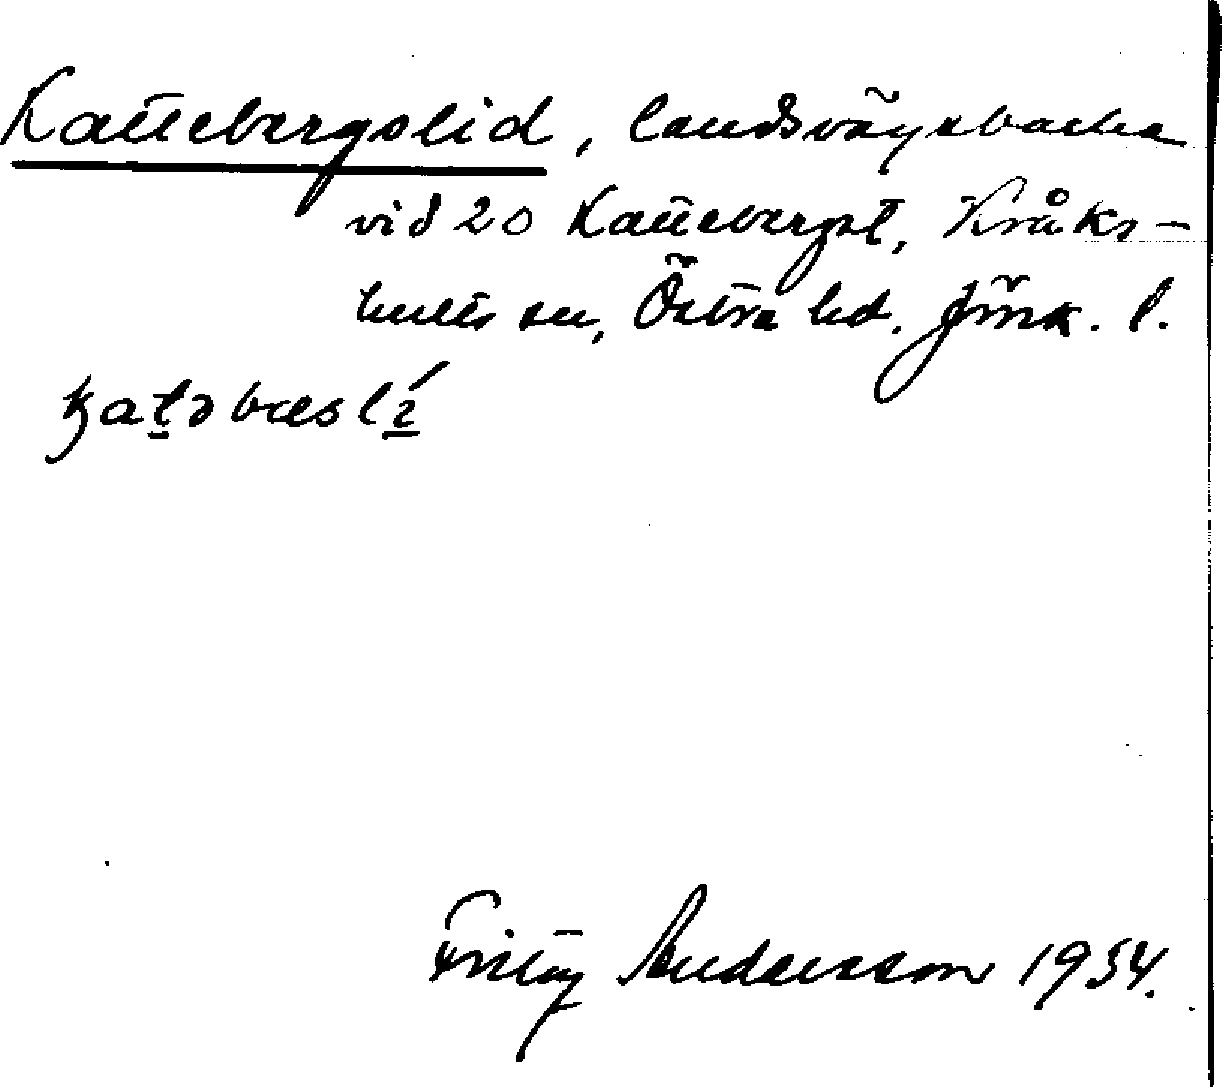 Kattebergslid, landsvägsbacke
vid 20 Katteberget, Kråks-
hults sn, Östra hd, Jönk. l.
Fritz Andersson 1954.